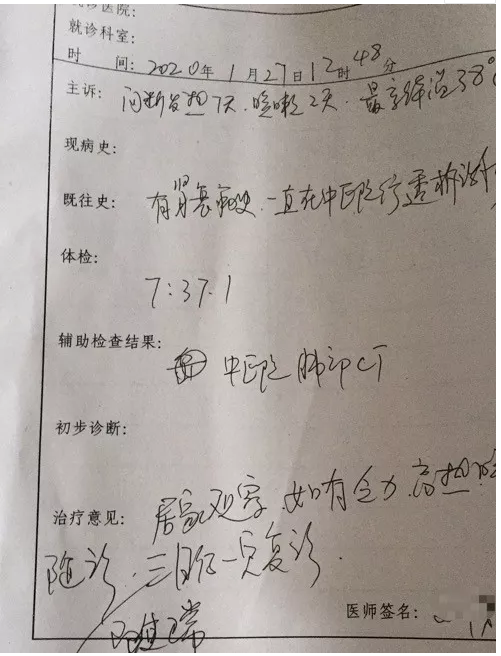 就诊医院:
就诊科室:
时 间: 2020年1月27日12时48分
主诉: 间断发热7天.咳嗽2天.最高体温38°
现病史:
既往史: 有肾衰病史.一直在中医院行透析治疗
体检:
7:37.1
辅助检查结果: 中医院肺部CT
初步诊断:
治疗意见: 居家观察 如有乏力 高热
随诊.三日后 复诊.
医师签名: